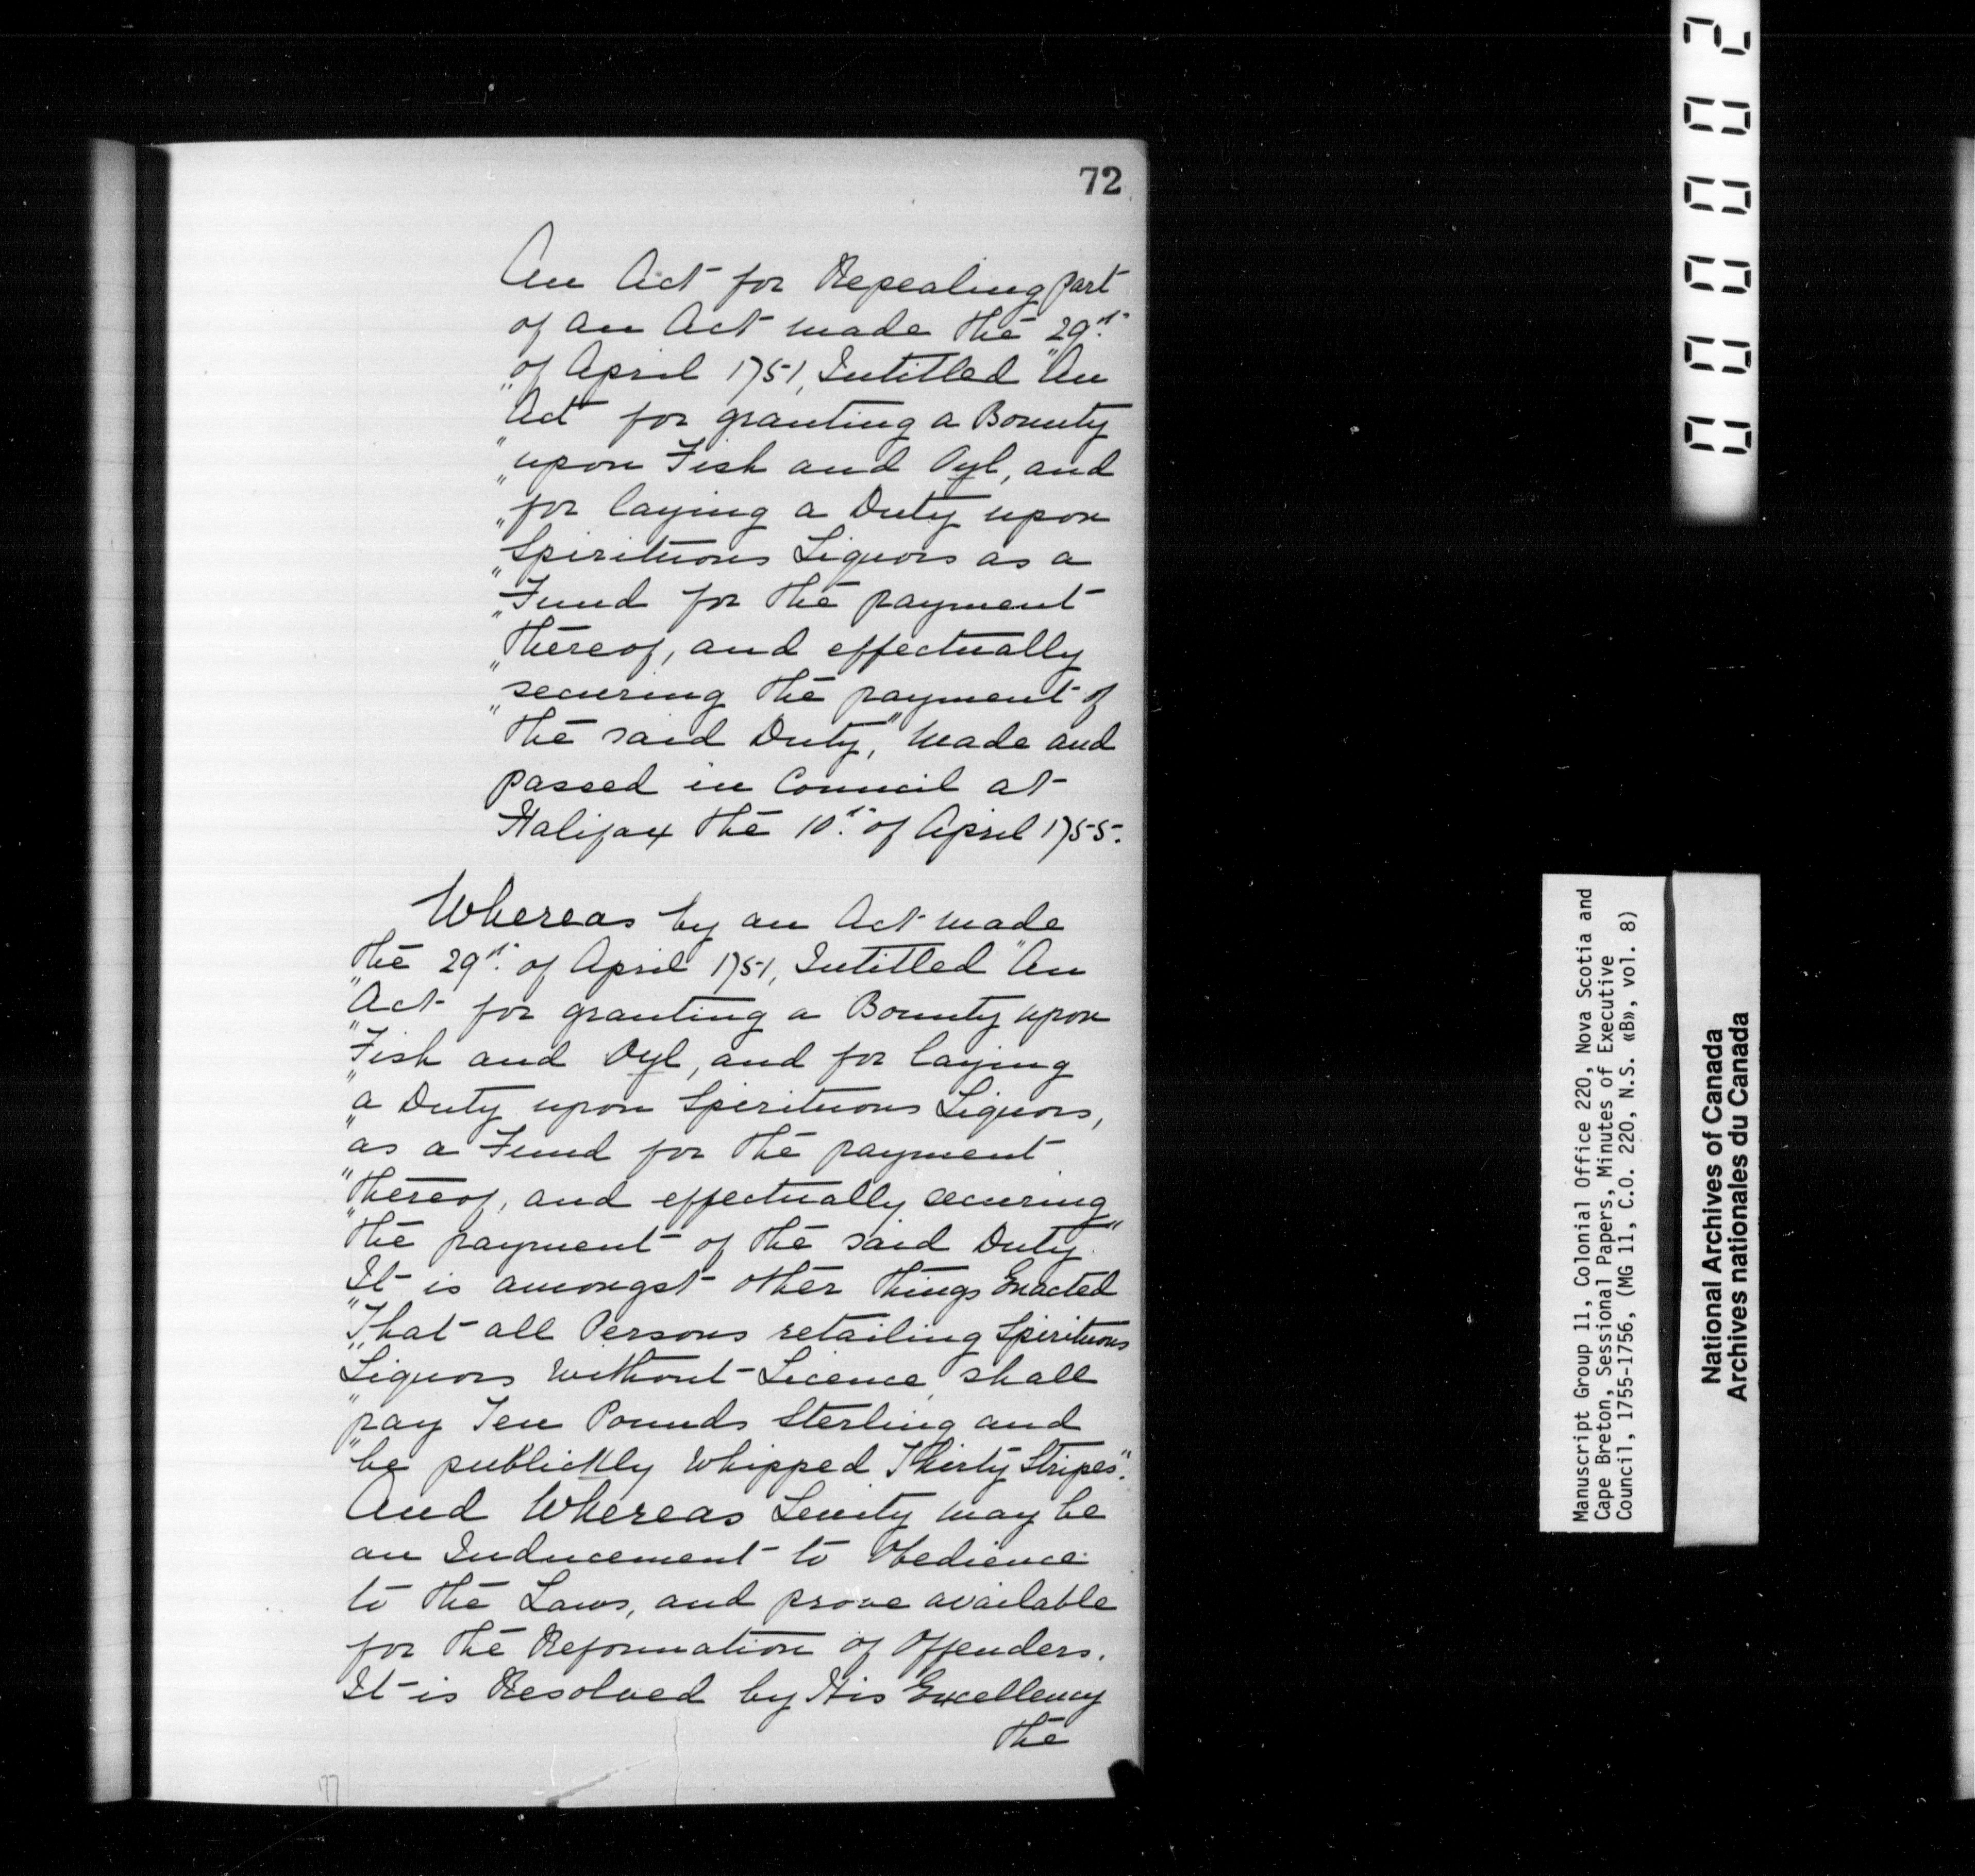 72
An Act for Repealing part
of an Act made the 29th.
of April 1751, Intitled "An
"Act for granting a Bounty
"upon Fish and Oyl, and
"for laying a Duty upon
"Spirituous Liquors as a
"Fund for the payment
"thereof, and effectually
"securing the payment of
"the said Duty," Made and
passed in Council at
Halifax the 10th. of April 1755.
Whereas by an Act made
the 29th. of April 1751, Intitled "An
"Act for granting a Bounty upon
"Fish and Oyl, and for laying
"a Duty upon Spirituous Liquors,
"as a Fund for the payment
"thereof, and effectually securing
"the payment of the said Duty."
It is amongst other things Enacted
"That all Persons retailing Spirituous
"Liquors without Licence shall
"pay Ten Pounds Sterling and
"be publickly whipped Thirty Stripes".
And Whereas Lenity may be
an Inducement to Obedience
to the Laws, and prove available
for the Reformation of Offenders.
It is Resolved by His Excellency
the
77
000002
Manuscript Group 11, Colonial Office 220, Nova Scotia and
Cape Breton, Sessional Papers, Minutes of Executive
Council, 1755-1756, (MG 11, C.O. 220, N.S. «B», vol. 8)
National Archives of Canada
Archives nationales du Canada